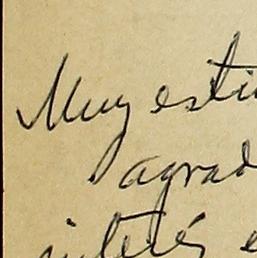 Muy esti
agrad
interés e